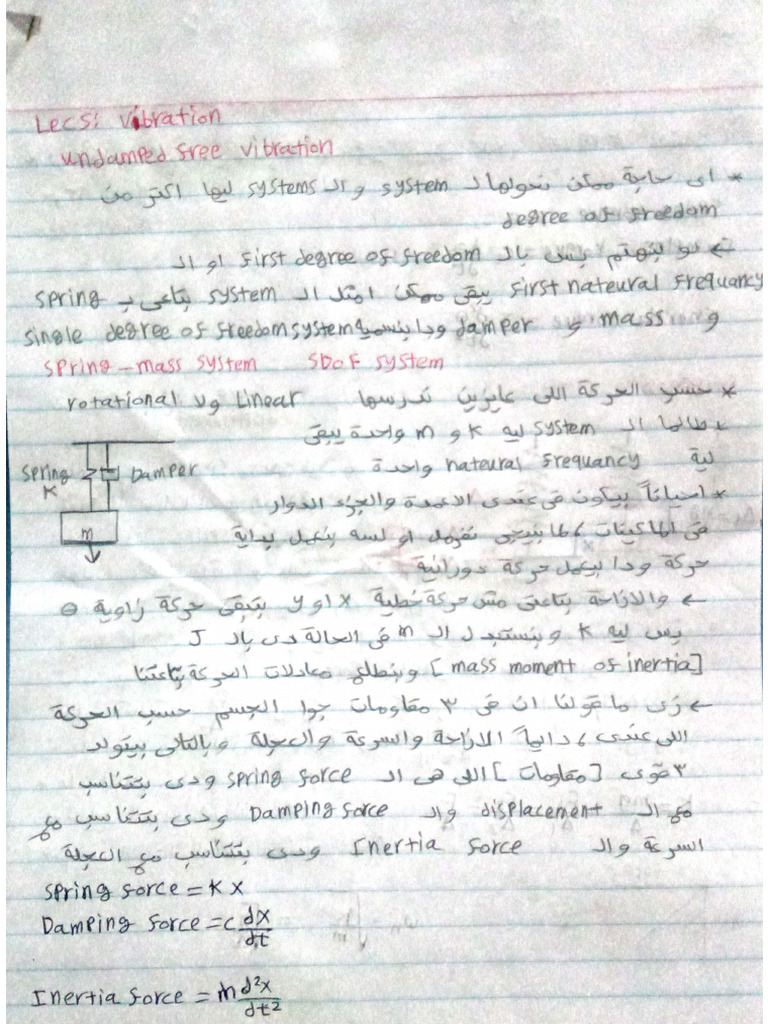 Lec5: Vibration
undamped free vibration
* اى حاجة ممكن نحولها لـ system و الـ systems ليها اكتر من
degree of freedom
← لو بنهتم بس بالـ first degree of freedom او الـ
first nateural frequancy يبقى ممكن امثل الـ system بتاعى بـ spring
و mass و damper ودا بنسمية single degree of freedom system
spring - mass system SDOF system
* حسب الحركة اللى عايزين ندرسها Linear ولا rotational
* طالما الـ system ليه K و m واحدة يبقى
لية nateural frequancy واحدة
spring Damper
K
m
* احياناً بيكون فى عندى الاعمدة والجزء الدوار
فى الماكينات، لما بنيجى نفرمل او لسه بنعمل بداية
حركة ودا بيعمل حركة دورانية
← والازاحة بتاعتى مش حركة خطية x او y بتبقى حركة زاوية θ
بس ليه K وبنستبدل الـ m فى الحالة دى بالـ J
[mass moment of inertia] وبنطلع معادلات الحركة بتاعتنا
← زى ما قولنا ان فى ٣ مقاومات جوا الجسم حسب الحركة
اللى عندى، دايماً الازاحة والسرعة والعجلة وبالتالى بيتولد
٣ قوى [مقاومات] اللى هى الـ spring force ودى بتتناسب
مع الـ displacement والـ Damping force ودى بتتناسب مع
السرعة والـ Inertia force ودى بتتناسب مع العجلة
Spring force = K x
Damping force = c dx/dt
Inertia force = m d²x/dt²